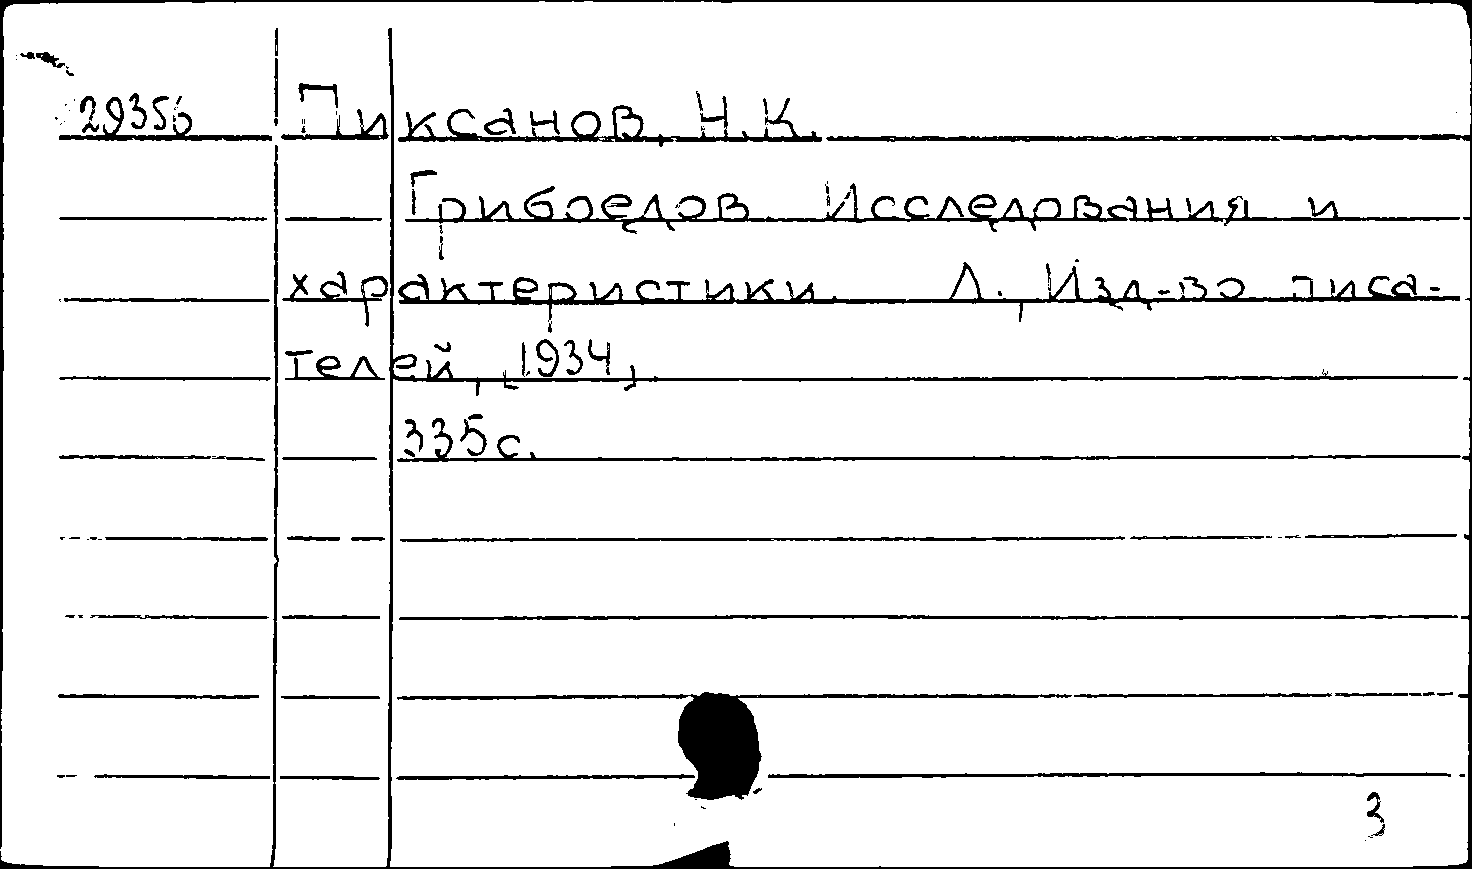 29356 Пиксанов, Н.К.
Грибоедов. Исследования и
характеристики. Л., Изд-во писа-
телей, [1934].
335с.
3